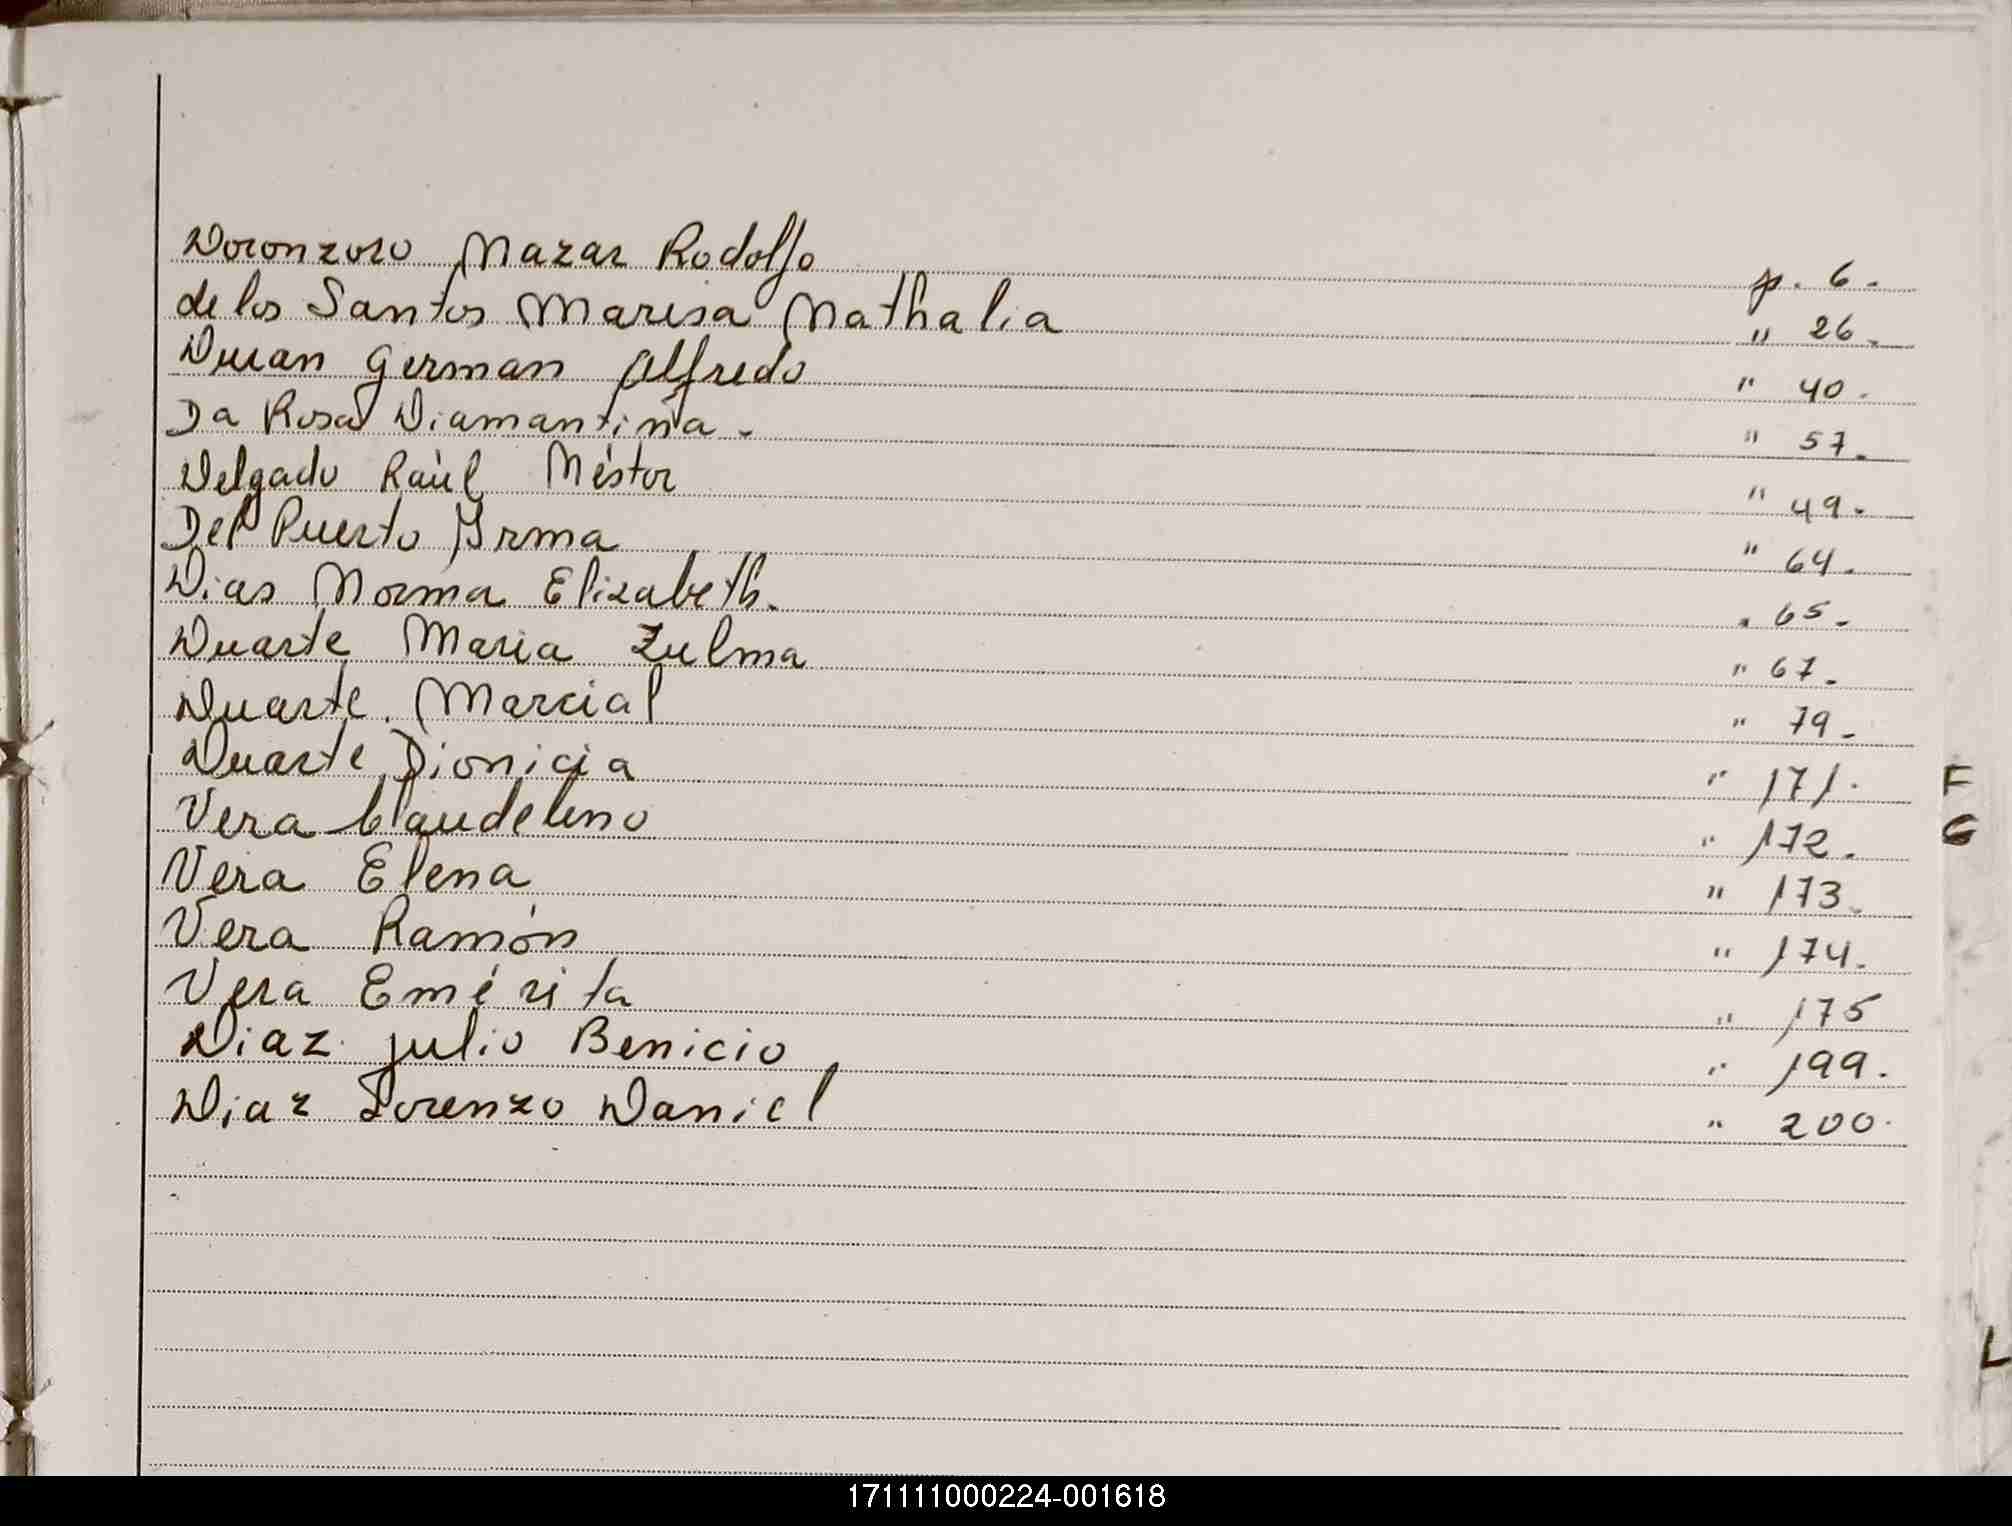 Doronzoro Nazar Rodolfo p. 6.
de los Santos Marisa Nathalia " 26.
Duran German Alfredo " 40.
Da Rosa Diamantina. " 57.
Delgado Raúl Néstor " 49.
Del Puerto Yrma " 64.
Dias Norma Elizabeth. " 65.
Duarte Maria Zulma " 67.
Duarte. Marcial " 79.
Duarte Dionicia " 171.
Vera Claudelino " 172.
Vera Elena " 173.
Vera Ramón " 174.
Vera Emérita " 175
Diaz Julio Benicio " 199.
Diaz Lorenzo Daniel " 200.
F
G
L
171111000224-001618